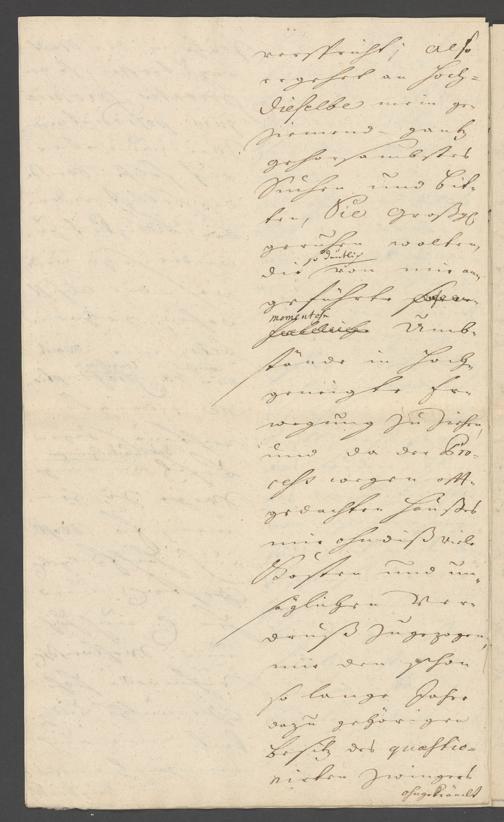 verspricht; also
ergehet an Hoch-
dieselbe mein ge-
ziemend- gantz
gehorsambstes
Suchen und bit-
ten, Sie Großg
geruhen wolten,
so deutlich
die von mir an-
geführte
momentosen
Umb-
stände in Hoch-
geneigte Er-
wegung zu ziehen,
und da der Pro-
cess wegen offt-
gedachten Haußes
mir ohndiß viele
Kosten und un-
säglichen Ver-
druß zugezogen,
mir den schon
so lange Jahre
dazu gehörigen
Besitz des quaestio-
nirten Zwingers
ohngekränckt